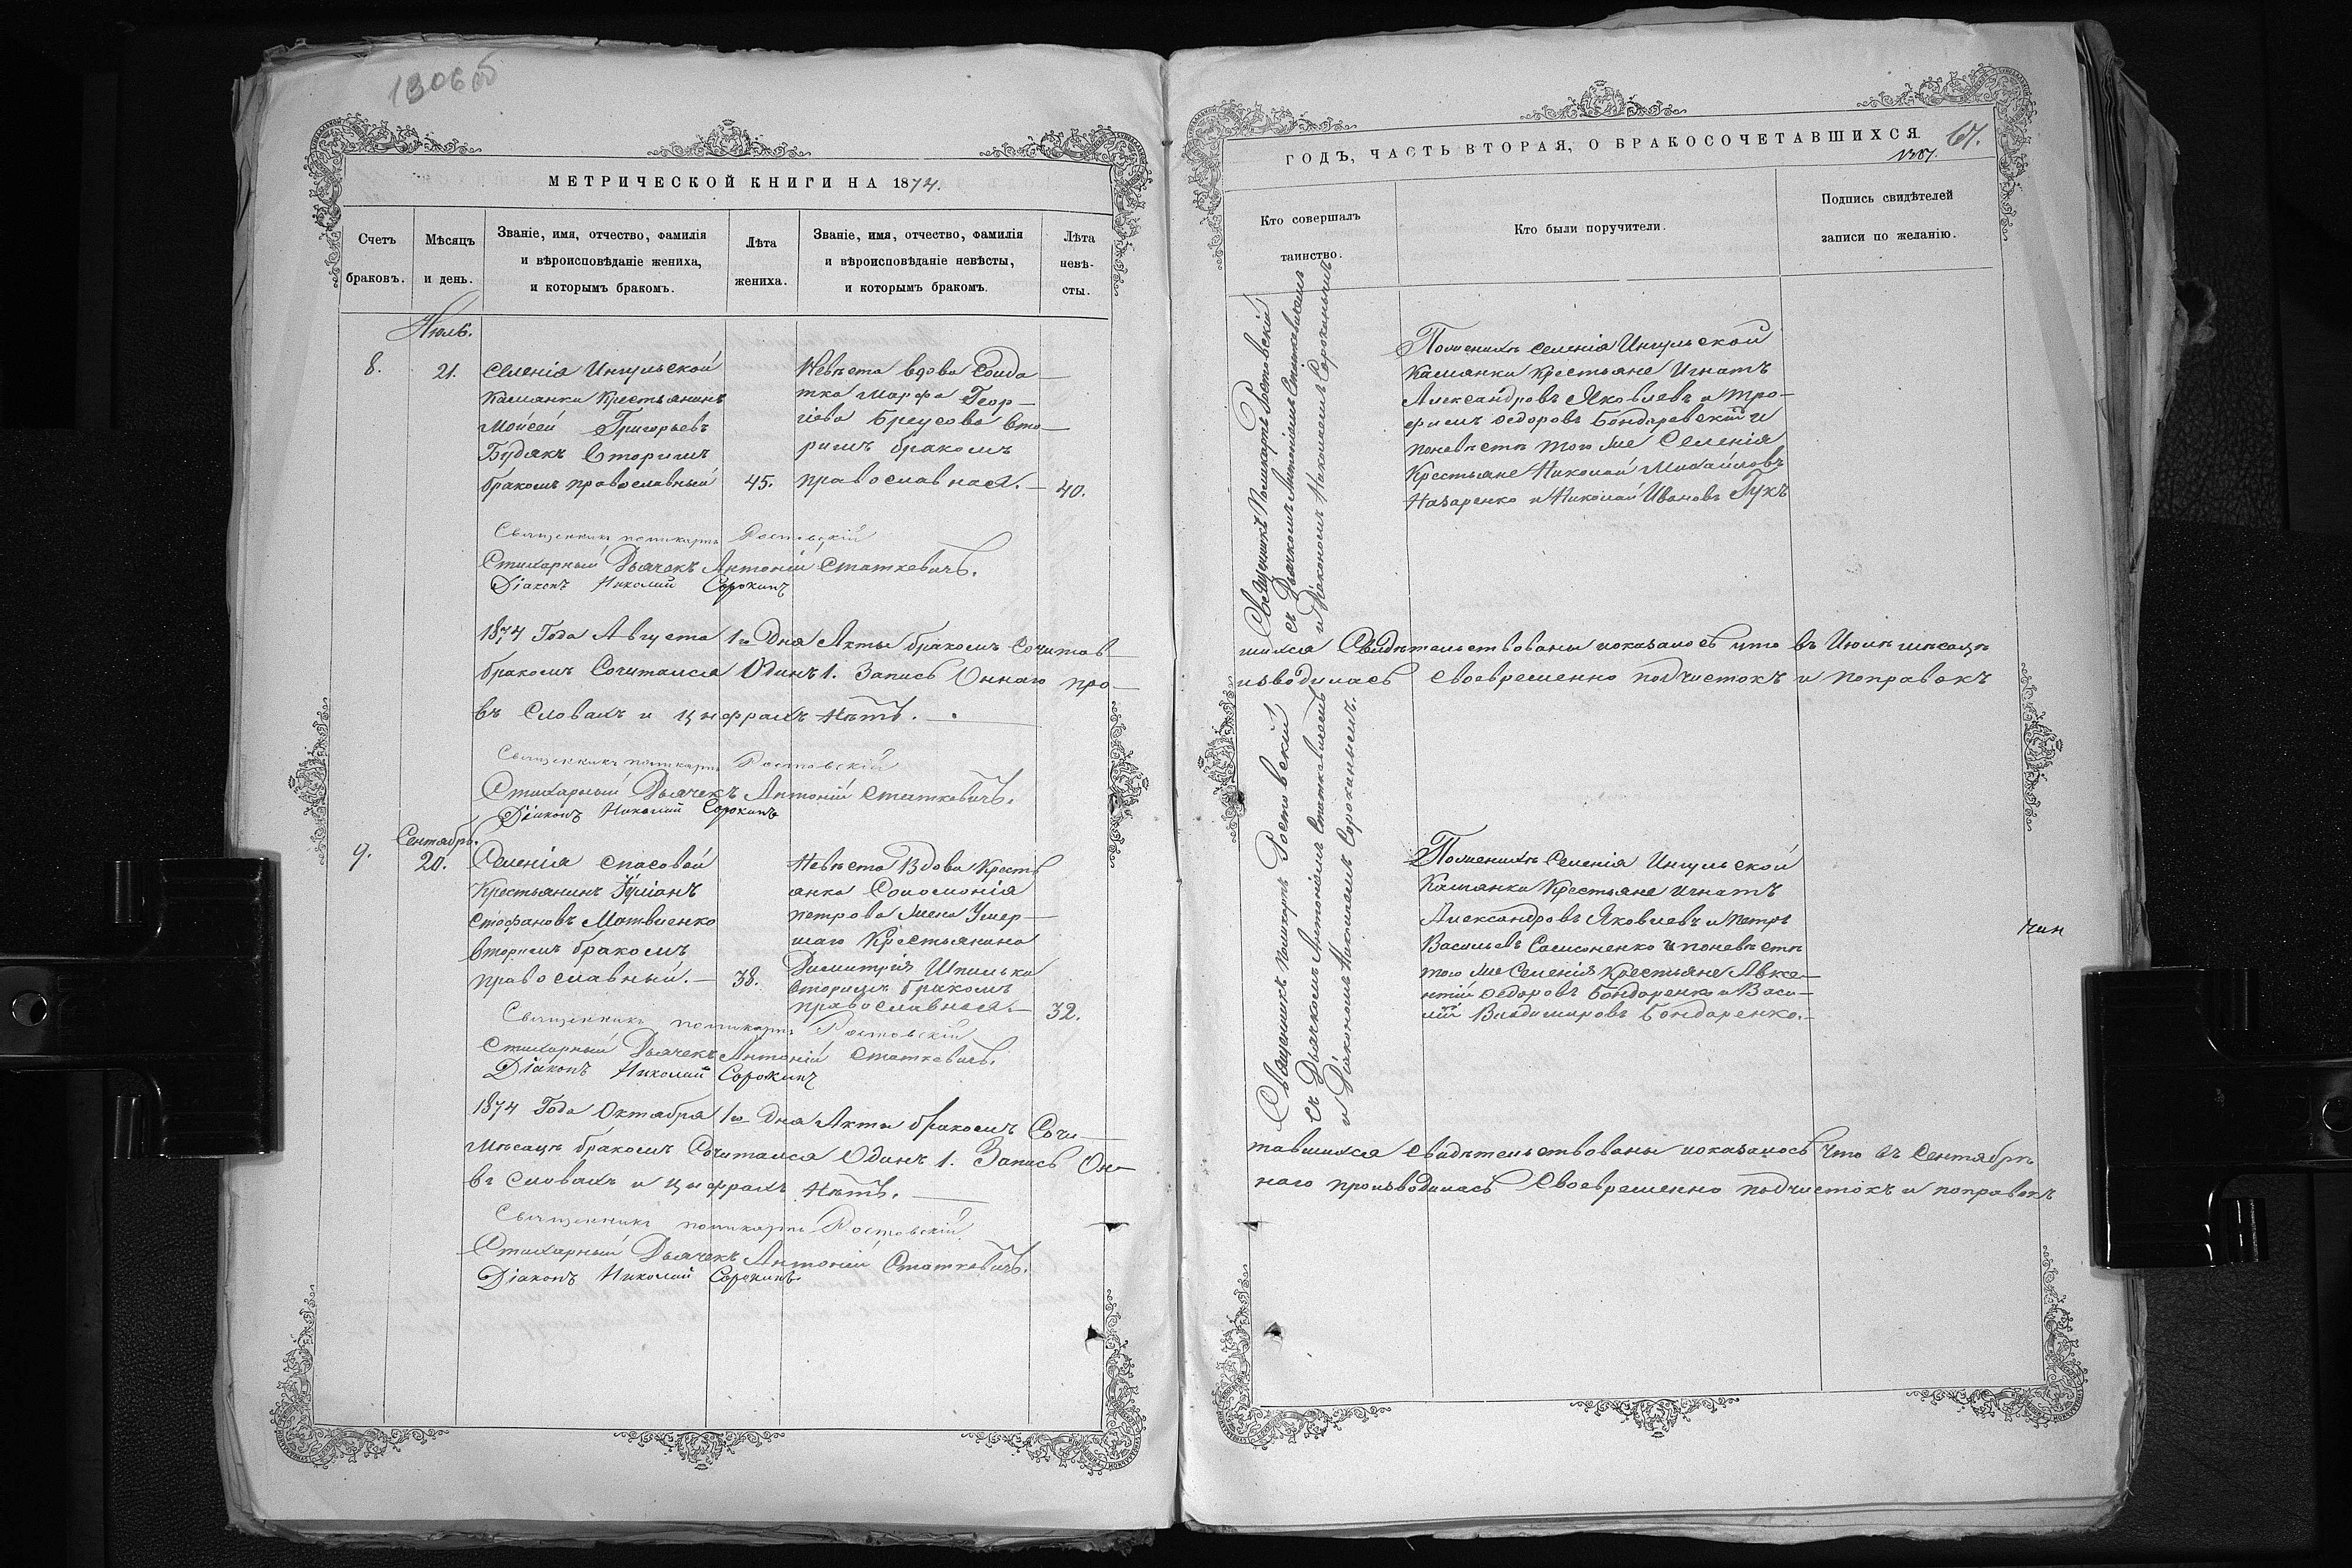 1306 об
МЕТРИЧЕСКОЙ КНИГИ НА 1874.
Счетъ браковъ.
Мѣсяцъ и день.
Званіе, имя, отчество, фамилія
и вѣроисповѣданіе жениха,
и которымъ бракомъ.
Лѣта жениха.
Званіе, имя, отчество, фамилія
и вѣроисповѣданіе невѣсты,
и которымъ бракомъ.
Лѣта невѣ-
сты.
Июль.
8.
21.
Селенія Ингульской
Камянки Крестьянинъ
Мойсей Григорьевъ
Будякъ вторымъ
бракомъ православный
45.
Невѣста вдова Солда
тка Марфа Геор-
гіева Бреусова вто-
рымъ бракомъ
православная.
40.
Священникъ Поликарпъ Ростовскій
Стихарный Дьячекъ Антоній Статкевичъ.
Діаконъ Николай Сорокинъ
1874 Года Августа 1го Дня Акты бракомъ Сочитав
бракомъ Сочитался Одинъ 1. Запись Оннаго про-
въ Словахъ и цыфрахъ Нѣтъ.
Священникъ Поликарпъ Ростовскій
Стихарный Дьячекъ Антоній Статкевичъ.
Діаконъ Николай Сорокинъ
Сентябрь.
9.
20.
Селенія Спасовой
Крестьянинъ Іуліанъ
Стефановъ Матвиенко
вторымъ бракомъ
православный.
38.
Невѣста Вдова Кресть
янка Соломонія
Петрова жена Умер-
шаго Крестьянина
Димитрія Шпильки
вторымъ бракомъ
православная.
32.
Священникъ Поликарпъ Ростовскій
Стихарный Дьячекъ Антоній Статкевичъ.
Діаконъ Николай Сорокинъ
1874 Года Октября 1го Дня Акты бракомъ Сочи-
Мѣсацѣ бракомъ Сочитался Одинъ 1. Запись Он-
въ Словахъ и цыфрахъ Нѣтъ.
Священникъ Поликарпъ Ростовскій
Стихарный Дьячекъ Антоній Статкевичъ.
Діаконъ Николай Сорокинъ.
ГОДЪ, ЧАСТЬ ВТОРАЯ, О БРАКОСОЧЕТАВШИХСЯ
67.
1307.
Кто совершалъ
таинство.
Кто были поручители.
Подпись свидѣтелей
записи по желанію.
Священникъ Поликарпъ Ростовскій
съ Дьячкомъ Антоніемъ Статкевичемъ
и Діакономъ Николаемъ Сорокинымъ
Поженихѣ Селенія Ингульской
Камянки Крестьяне Игнатъ
Александровъ Яковлевъ и Тро-
фимъ Федоровъ Бондаревскій и
поневѣстѣ того же Селенія
Крестьяне Николай Михайловъ
Назаренко и Николай Ивановъ Гукъ
шихся Свидѣтельствованы показалось что въ Июлѣ мѣсацѣ
изводилась своевременно подчистокъ и поправокъ
Священникъ Поликарпъ Ростовскій
съ Дьячкомъ Антоніемъ Статкевичемъ
и Діакономъ Николаемъ Сорокинымъ.
Поженихѣ Селенія Ингульской
Камянки Крестьяне Игнатъ
Александровъ Яковлевъ и Петръ
Васильевъ Самсоненко и поневѣстѣ
того же Селенія Крестьяне Авксе-
нтій Федоровъ Бондаренко и Васи-
лій Владимировъ Бондаренко.
тавшихся Свидѣтельствованы показалось что въ Сентябрѣ
наго производилась Своевременно подчистокъ и поправокъ